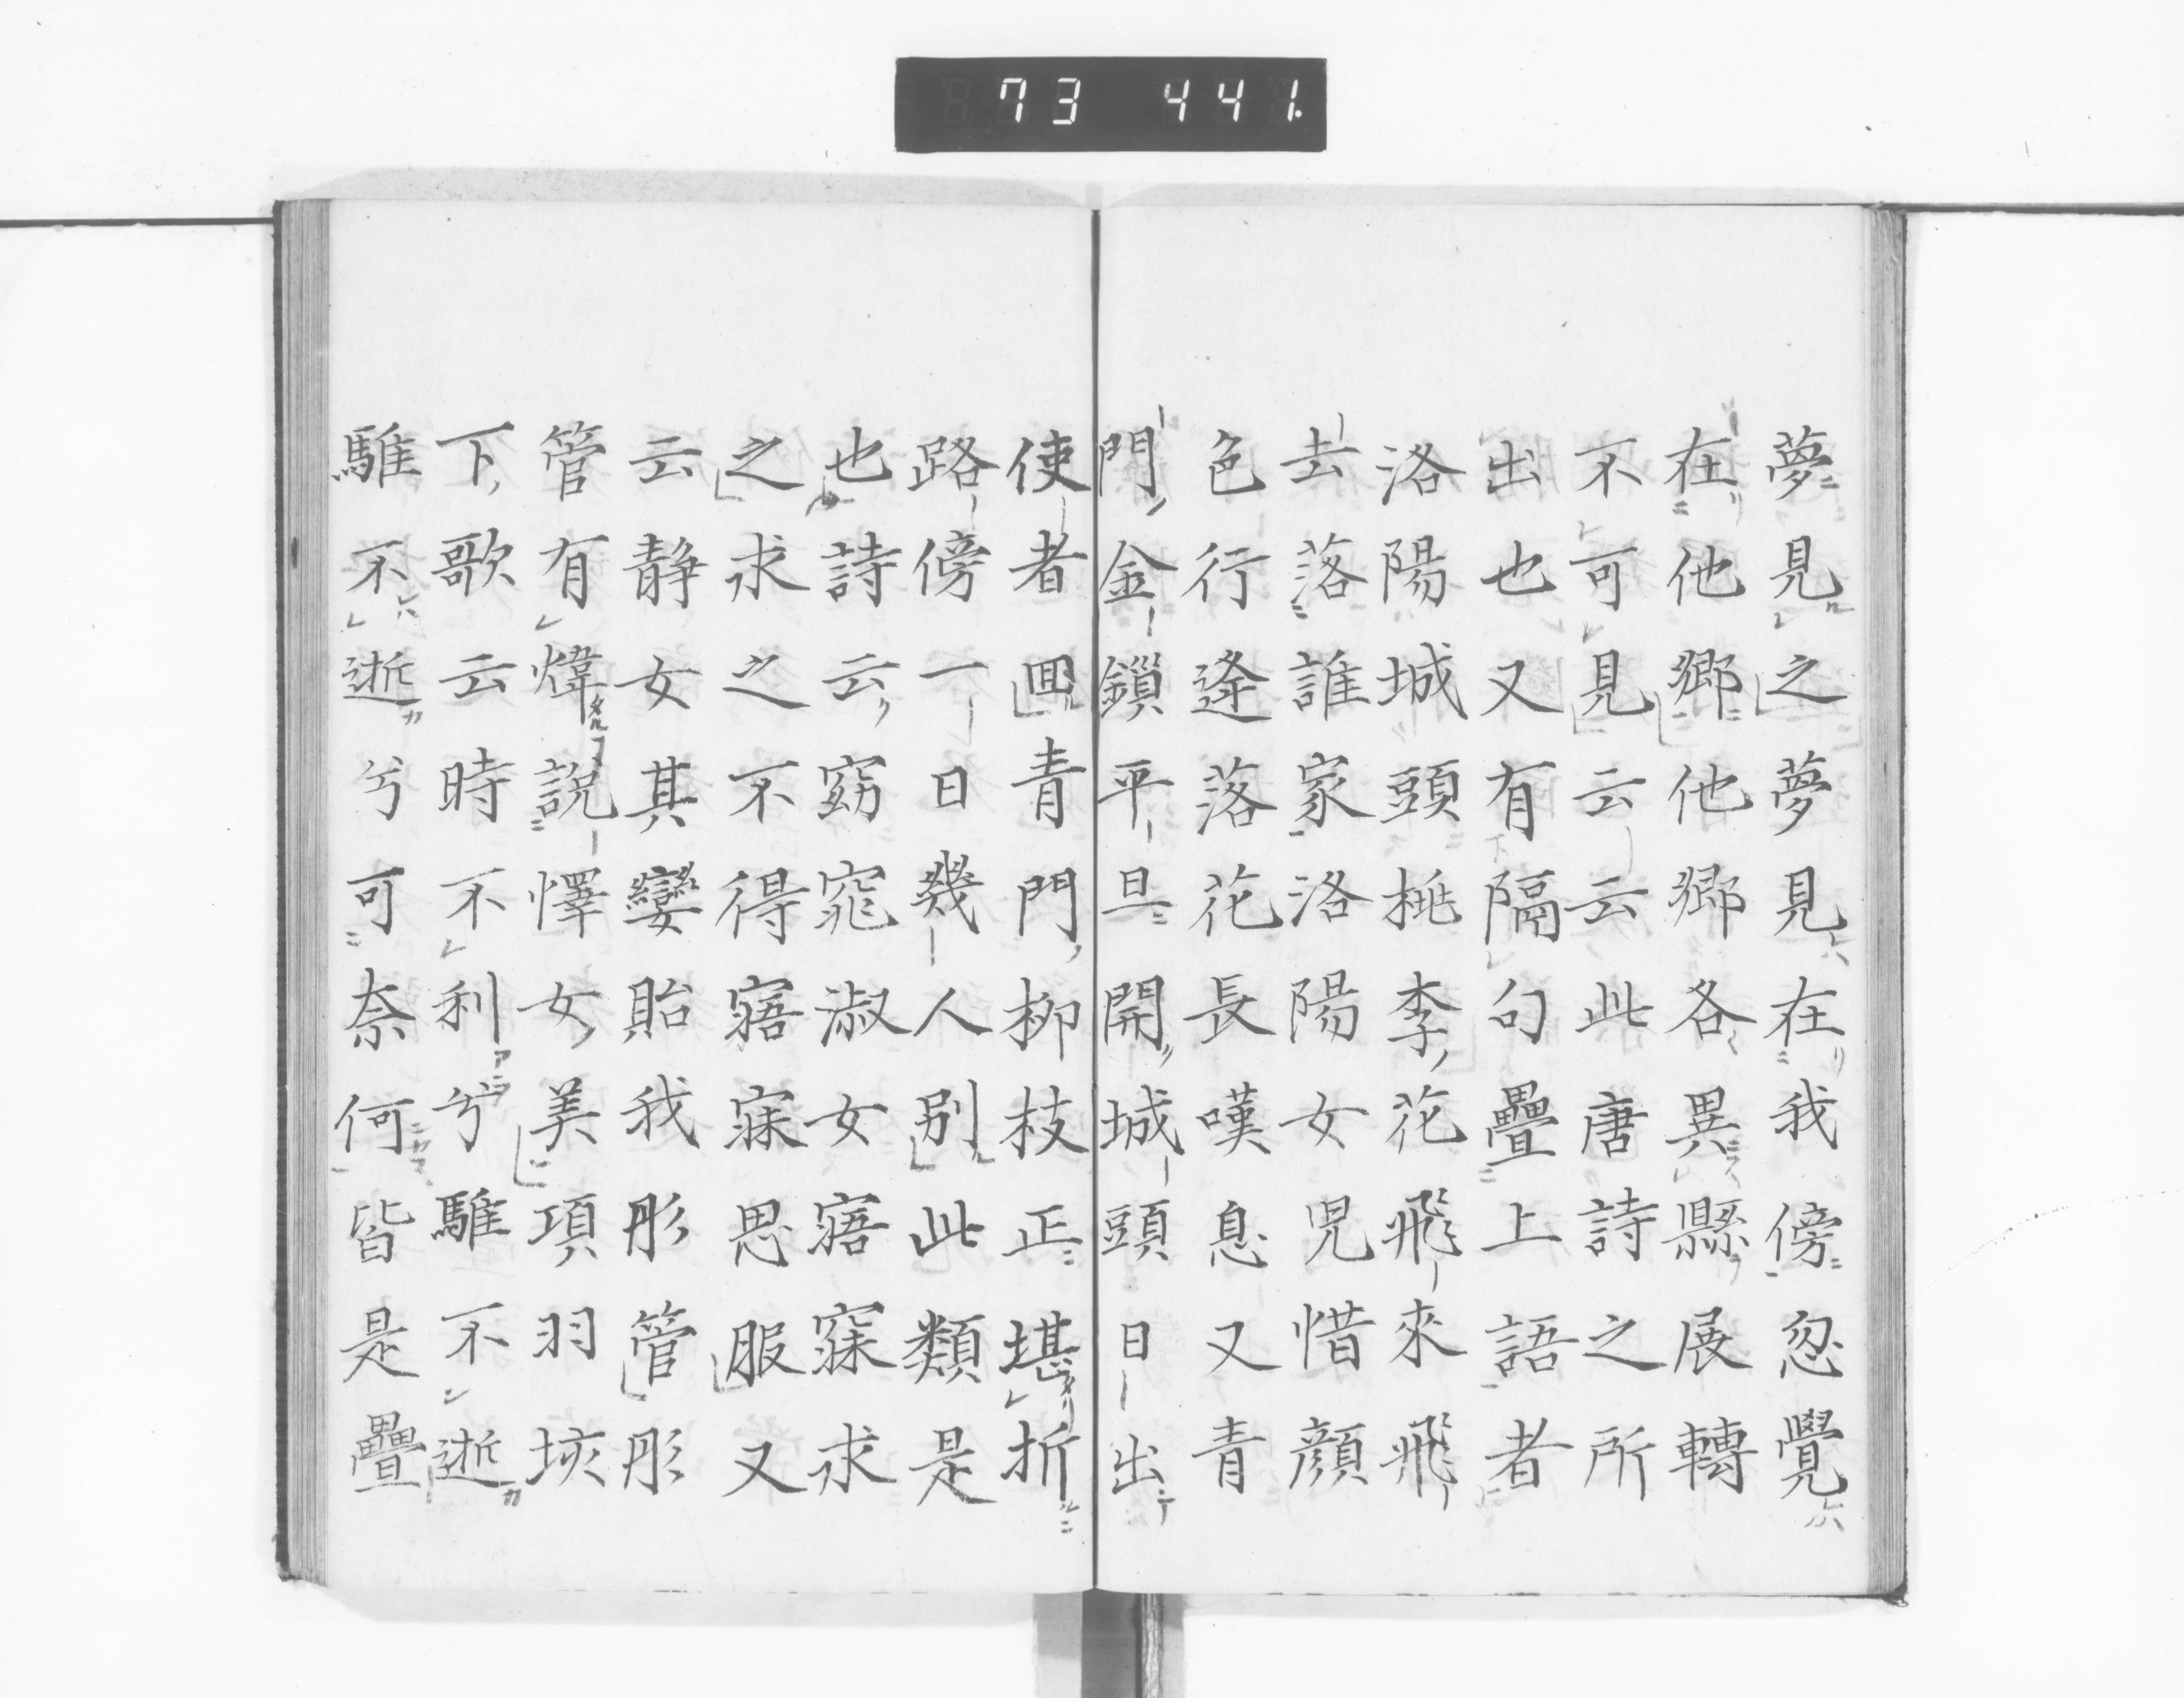 73 441
夢見之夢見在我傍忽覺
在他鄉他鄉各異縣展轉
不可見云云此唐詩之所
出也又有隔句疊上語者
洛陽城頭桃李花飛來飛
去落誰家洛陽女児惜顔
色行逢落花長嘆息又青
門金鎖平旦開城頭日出
使者回青門柳枝正堪折
路傍一日幾人別此類是
也詩云窈窕淑女寤寐求
之求之不得寤寐思服又
云静女其孌貽我彤管彤
管有煒說懌女美項羽垓
下歌云時不利兮騅不逝
騅不逝兮可奈何皆是疊